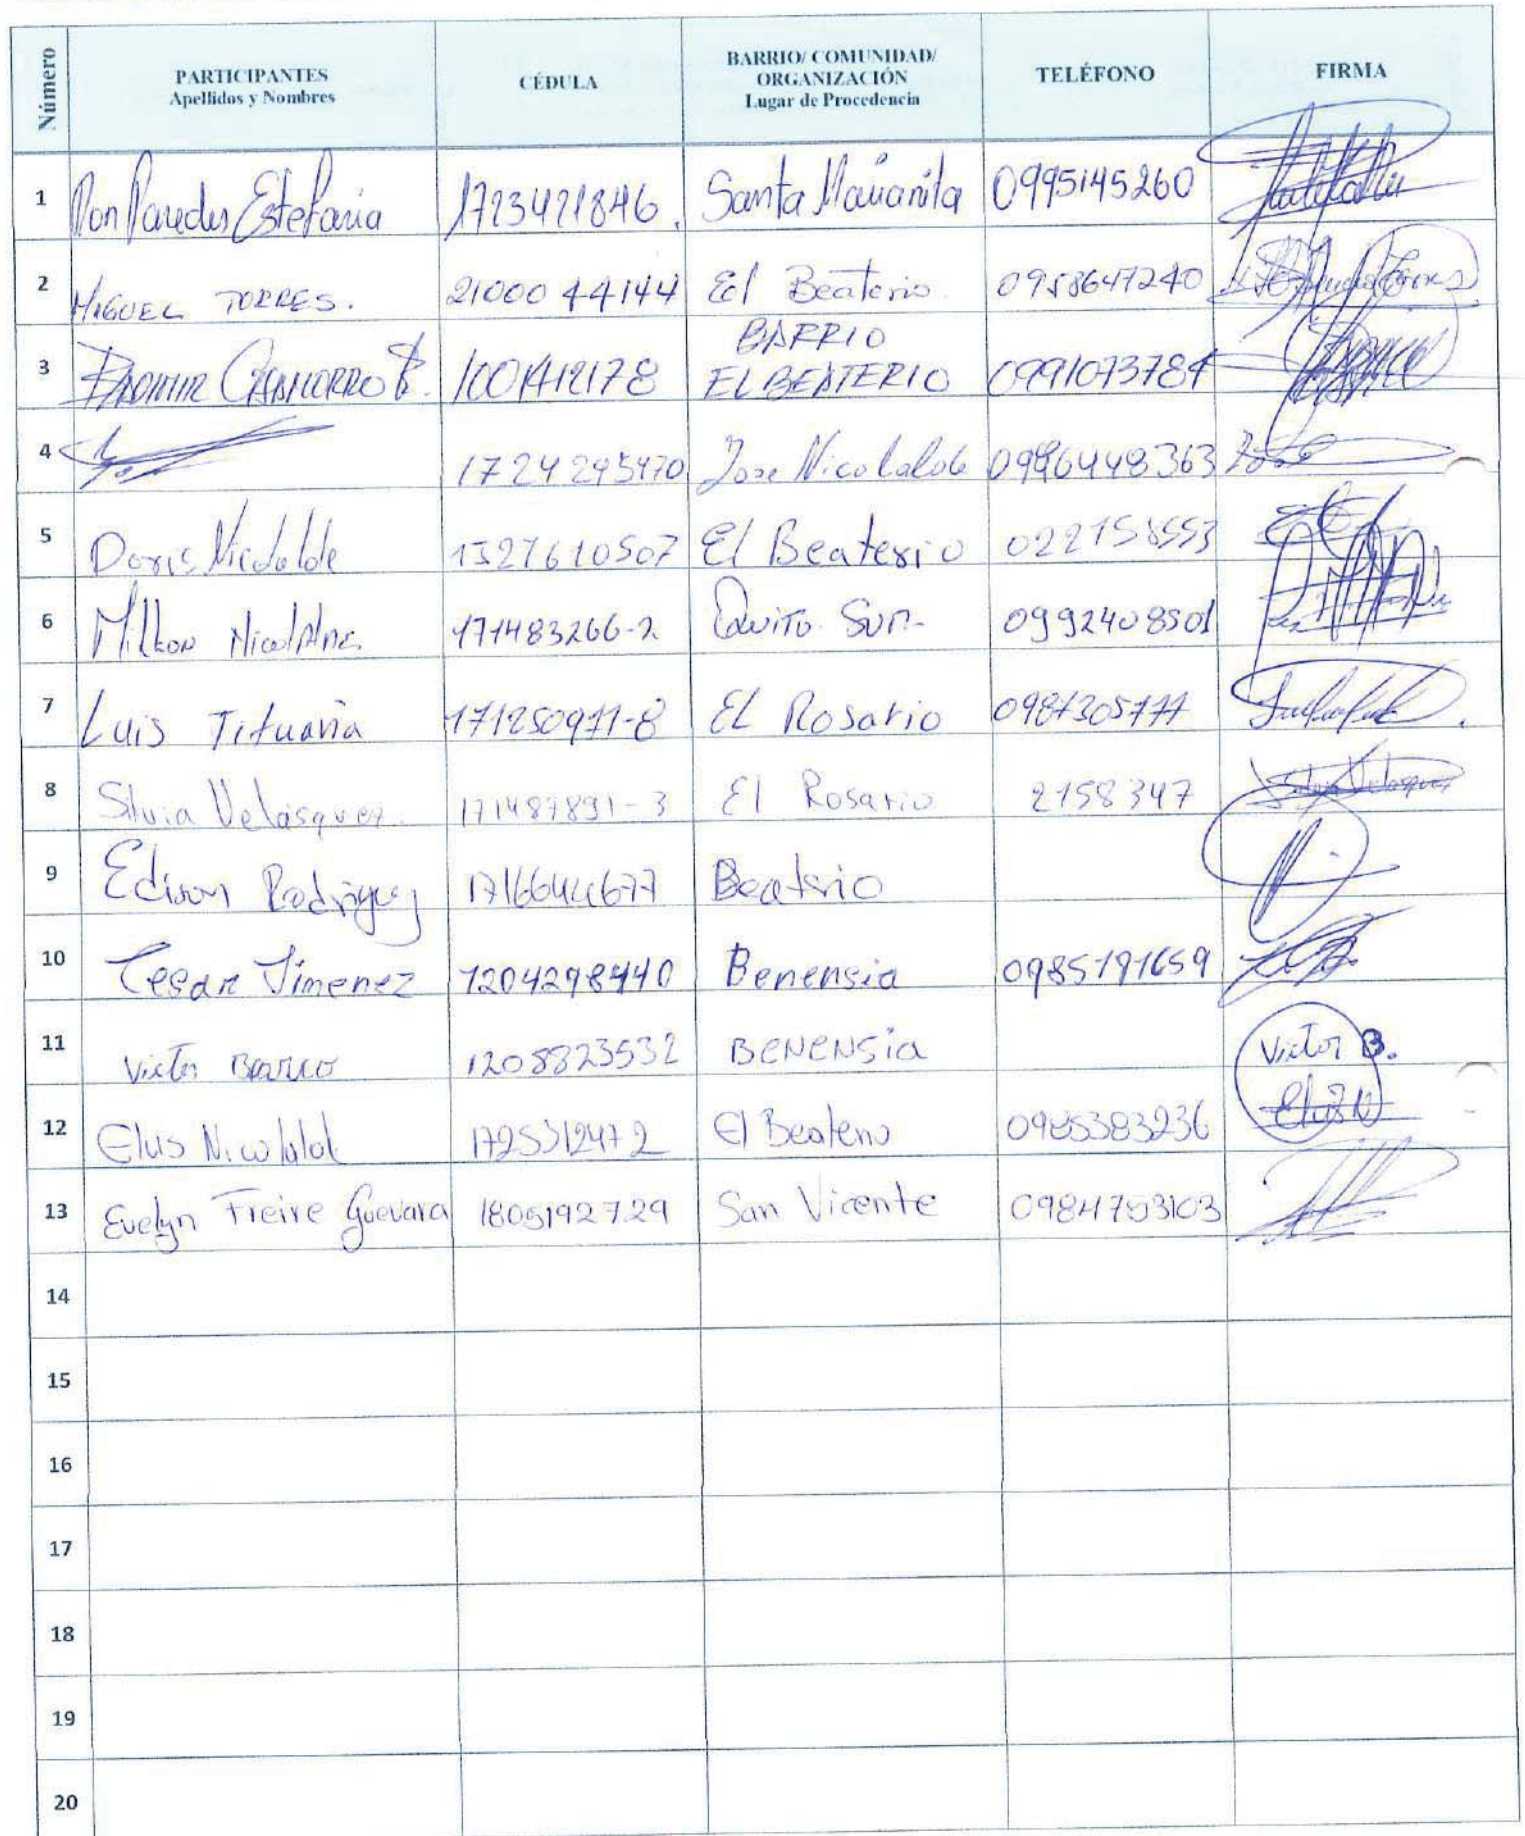 Número
PARTICIPANTES
Apellidos y Nombres
CÉDULA
BARRIO/ COMUNIDAD/
ORGANIZACIÓN
Lugar de Procedencia
TELÉFONO
FIRMA
1 Paredes Estefania 1723421846. Santa Marianita 0995145260
2 MIGUEL TORRES. 2100044144 El Beaterio 0958647240
BARRIO
3 CHAMORRO 1001412178 EL BEATERIO 0991073784
4 1724295970 Jose Nicolalde 0996448363
5 Doris Nicolalde 1527610507 El Beaterio 022158553
6 Milton 171483266-2 Quito Sur- 0992408501
7 Luis Tituaña 171250971-8 EL Rosario 0987305777
8 Silvia Velasquez 171487891-3 El Rosario 2158347 Silvia Velasquez
9 Edison Rodriguez 1716644677 Beaterio
10 Cesar Jimenez 1204298440 Benensia 0985191659
11 Victor Barco 1208823532 BENENSia Victor B.
12 Elvis Nicolalde 1725312472 El Beaterio 0985383236 Elvis N
13 Evelyn Freire Guevara 1805192729 San Vicente 0984753103
14
15
16
17
18
19
20